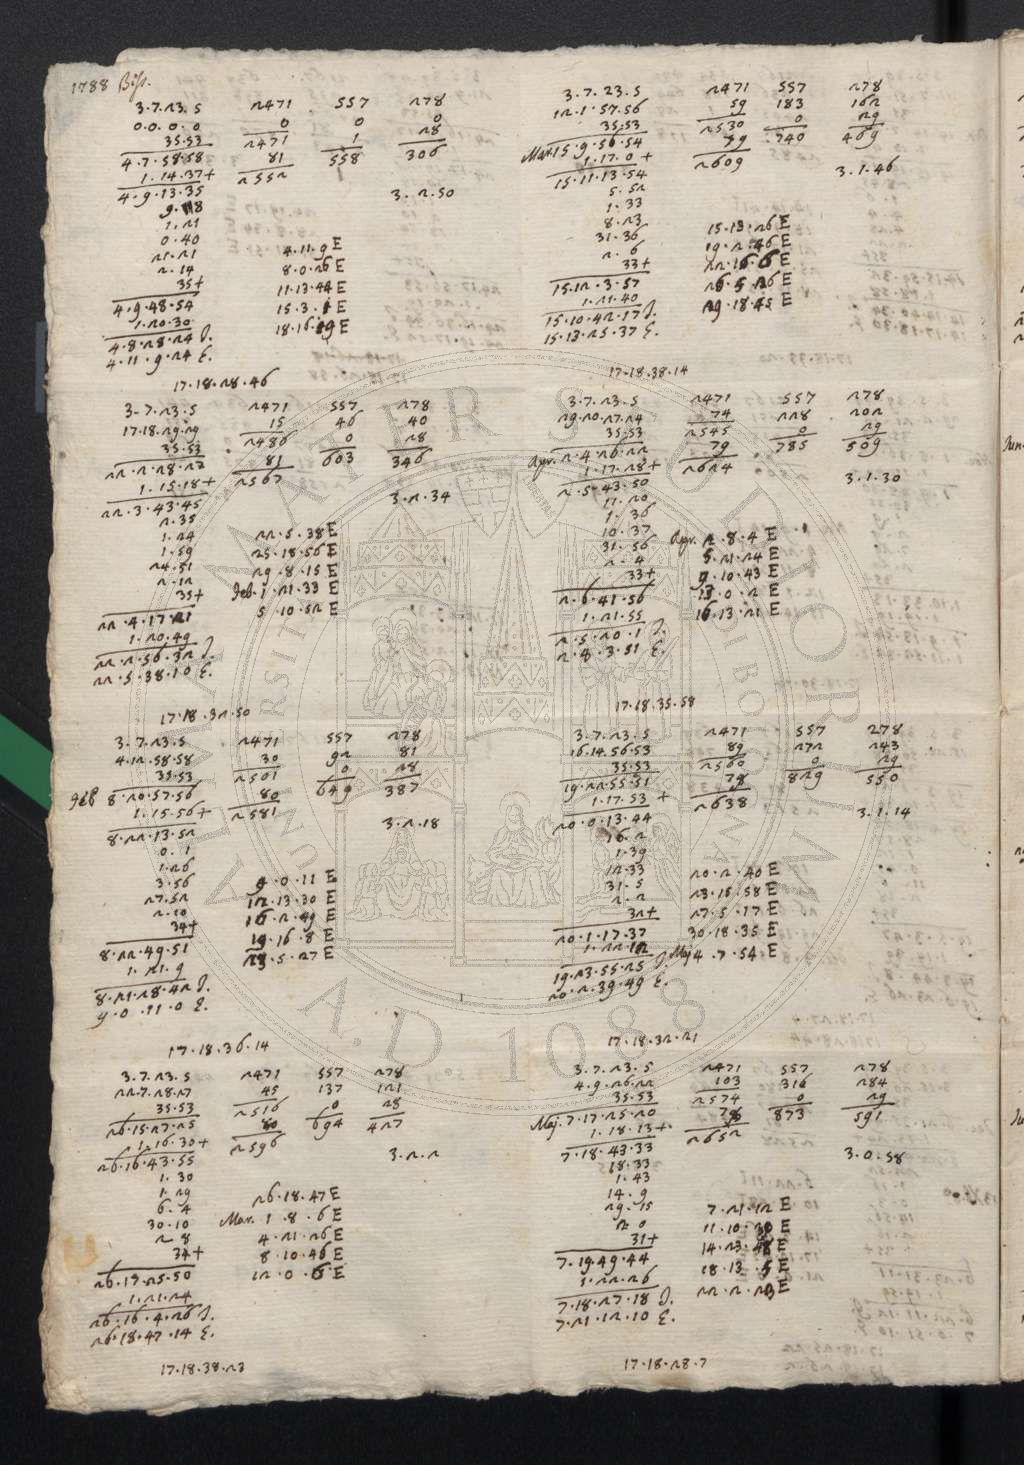 1788 Biss.
3.7.23.5 2471 557 278
0.0.0.0 0 0 0
35.53 2471 1 28
4.7.58.58 81 558 306
1.14.37+ 2552
4.9.13.35 3.2.50
9.18
1.21
0.40
21.21 4.11.9 E
2.14 8.0.26 E
35+ 11.13.44 E
4.9.48.54 15.3.1 E
1.20.30 18.16.19 E
4.8.28.24 I.
4.11.9.24 E.
17.18.28.46
3.7.23.5 2471 557 278
17.18.29.29 15 46 40
35.53 2486 0 28
22.2.28.27 81 603 346
1.15.18+ 2567
22.3.43.45 3.2.34
2.35
1.24 22.5.38 E
1.59 25.18.56 E
24.51 29.8.15 E
2.12 Feb. 1.21.33 E
35+ 5.10.52 E
22.4.17.21
1.20.49
22.2.56.32 I.
22.5.38.10 E.
17.18.32.50
3.7.23.5 2471 557 278
4.12.58.58 30 92 81
35.53 2501 0 28
Feb 8.20.57.56 80 649 387
1.15.56+ 2581
8.22.13.52 3.2.18
0.1
1.26
3.56 9.0.11 E
27.52 12.13.30 E
2.10 16.2.49 E
34+ 19.16.8 E
8.22.49.51 23.5.27 E
1.21.9
8.21.28.42 I.
9.0.11.0 E.
17.18.36.14
3.7.23.5 2471 557 278
22.7.28.27 45 137 121
35.53 2516 0 28
26.15.27.25 80 694 427
1.16.30+ 2596
26.16.43.55 3.2.2
1.30
1.29
6.4 26.18.47 E
30.10 Mar. 1.8.6 E
2.8 4.21.26 E
34+ 8.10.46 E
26.17.25.50 12.0.6 E
1.21.24
26.16.4.26 I.
26.18.47.14 E.
17.18.38.23
3.7.23.5 2471 557 278
12.1.57.56 59 183 162
35.53 2530 0 29
Mar. 15.9.56.54 79 740 469
1.17.0+ 2609
15.11.13.54 3.1.46
5.52
1.33
8.23 15.13.26 E
31.36 19.2.46 E
2.6 22.16.6 E
33+ 26.5.26 E
15.12.3.57 29.18.45 E
1.21.40
15.10.42.17 I.
15.13.25.37 E.
17.18.38.14
3.7.23.5 2471 557 278
29.20.27.24 74 228 202
35.53 2545 0 29
Apr. 2.4.26.22 79 785 509
1.17.28+ 2624
2.5.43.50 3.1.30
11.20
1.36
10.37 Apr. 2.8.4 E
31.56 5.21.24 E
2.4 9.10.43 E
33+ 13.0.2 E
2.6.41.56 16.13.21 E
1.21.55
2.5.20.1 I.
2.8.3.51 E.
17.18.35.58
3.7.23.5 2471 557 278
16.14.56.53 89 272 243
35.53 2560 0 29
19.22.55.51 78 829 550
1.17.53+ 2638
20.0.13.44 3.1.14
16.2
1.39
12.33 20.2.40 E
31.5 23.15.58 E
2.2 27.5.17 E
32+ 30.18.35 E
20.1.17.37 Maj 4.7.54 E
1.22.12
19.23.55.25 I.
20.2.39.49 E.
17.18.32.21
3.7.23.5 2471 557 278
4.9.26.22 103 316 284
35.53 2574 0 29
Maj. 7.17.25.20 78 873 591
1.18.13+ 2652
7.18.43.33 3.0.58
18.33
1.43
14.9
29.15 7.21.12 E
2.0 11.10.30 E
31+ 14.23.48 E
7.19.49.44 18.13.5 E
1.22.26 22.2.23 E
7.18.27.18 I.
7.21.12.10 E.
17.18.28.7
ALMA MATER STUDIORUM
A.D. 1088